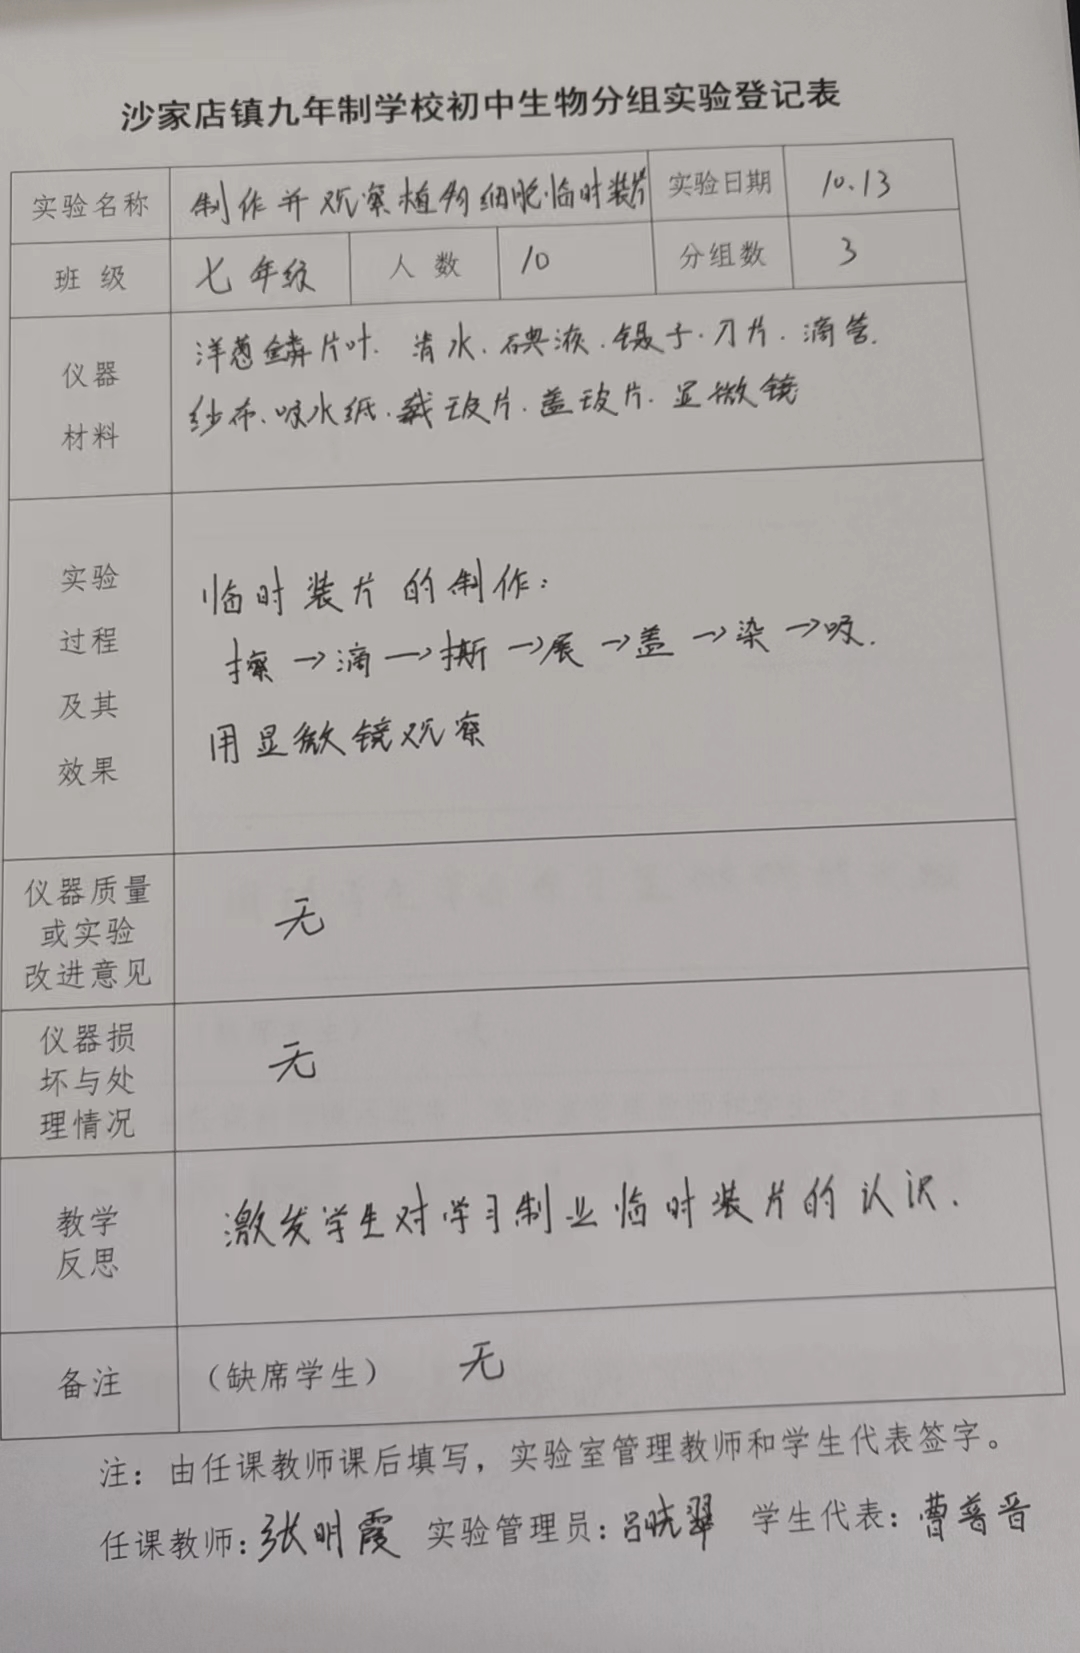 沙家店镇九年制学校初中生物分组实验登记表
实验名称 制作并观察植物细胞临时装片 实验日期 10.13
班 级 七年级 人 数 10 分组数 3
仪器
材料
洋葱鳞片叶. 清水. 碘液. 镊子. 刀片. 滴管.
纱布. 吸水纸. 载玻片. 盖玻片. 显微镜
实验
过程
及其
效果
临时装片的制作:
擦→滴→撕→展→盖→染→吸.
用显微镜观察
仪器质量
或实验
改进意见
无
仪器损
坏与处
理情况
无
教学
反思
激发学生对学习制业临时装片的认识.
备注 (缺席学生) 无
注：由任课教师课后填写，实验室管理教师和学生代表签字。
任课教师: 张明霞 实验管理员: 吕晓翠 学生代表: 曹普晋